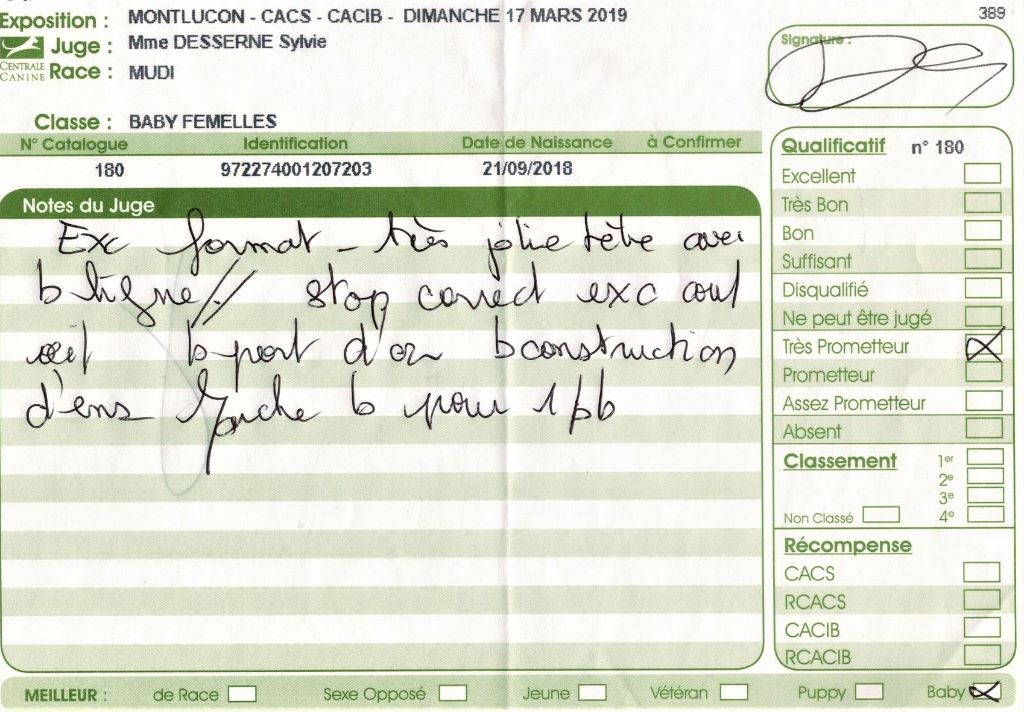 Exposition : MONTLUCON - CACS - CACIB - DIMANCHE 17 MARS 2019
389
Juge : Mme DESSERNE Sylvie
CENTRALE CANINE
Race : MUDI
Signature :
Classe : BABY FEMELLES
N° Catalogue Identification Date de Naissance à Confirmer
180 972274001207203 21/09/2018
Notes du Juge
Exc format - très jolie tête avec
b ligne // stop correct exc
œil b port d'or b construction
d'ens b pour 1 bb
Qualificatif n° 180
Excellent
Très Bon
Bon
Suffisant
Disqualifié
Ne peut être jugé
Très Prometteur
Prometteur
Assez Prometteur
Absent
Classement 1er
2e
3e
Non Classé 4e
Récompense
CACS
RCACS
CACIB
RCACIB
MEILLEUR : de Race Sexe Opposé Jeune Vétéran Puppy Baby